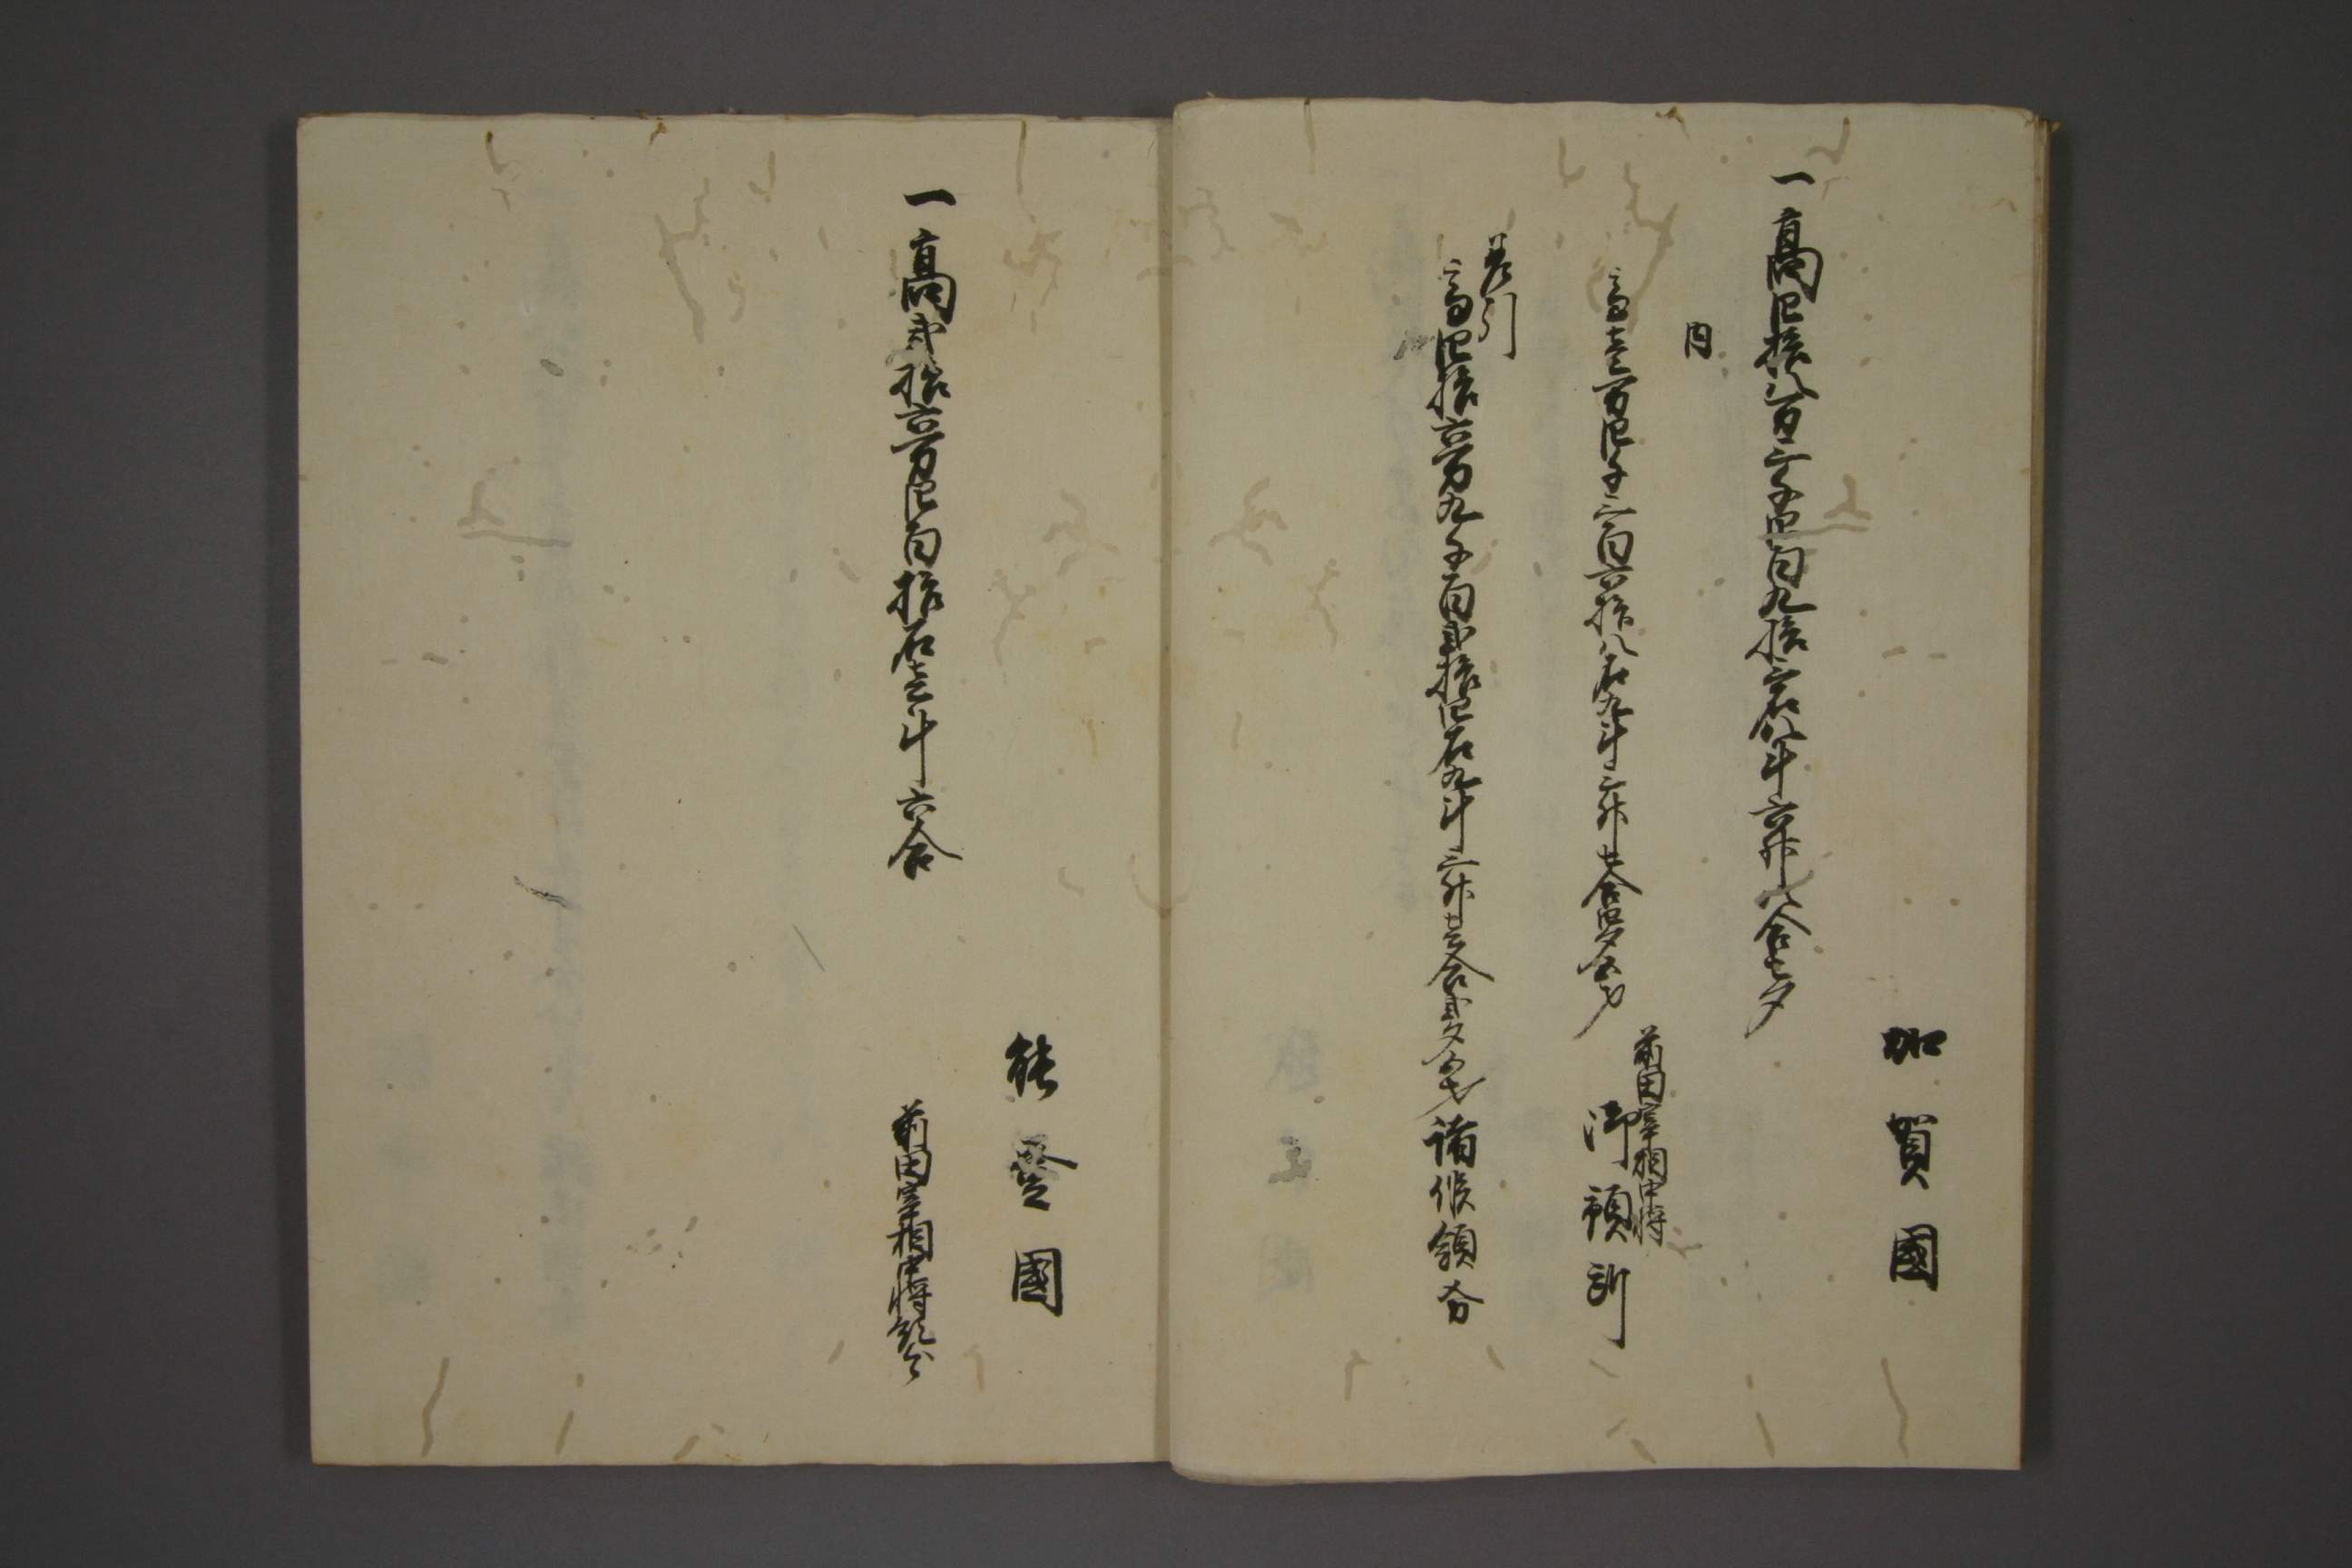 加賀國
一高四拾八万三千四百九拾三石八斗六升八合七夕
内
前田宰相中将
高壱万四千三百六拾八石九斗三升七合四夕五才 御預所
差引
高四拾六万九千百弐拾四石九斗三升壱合弐夕五才 諸侯領分
能登國
一高弐拾六万四百拾石壱斗六合
前田宰相中将領分